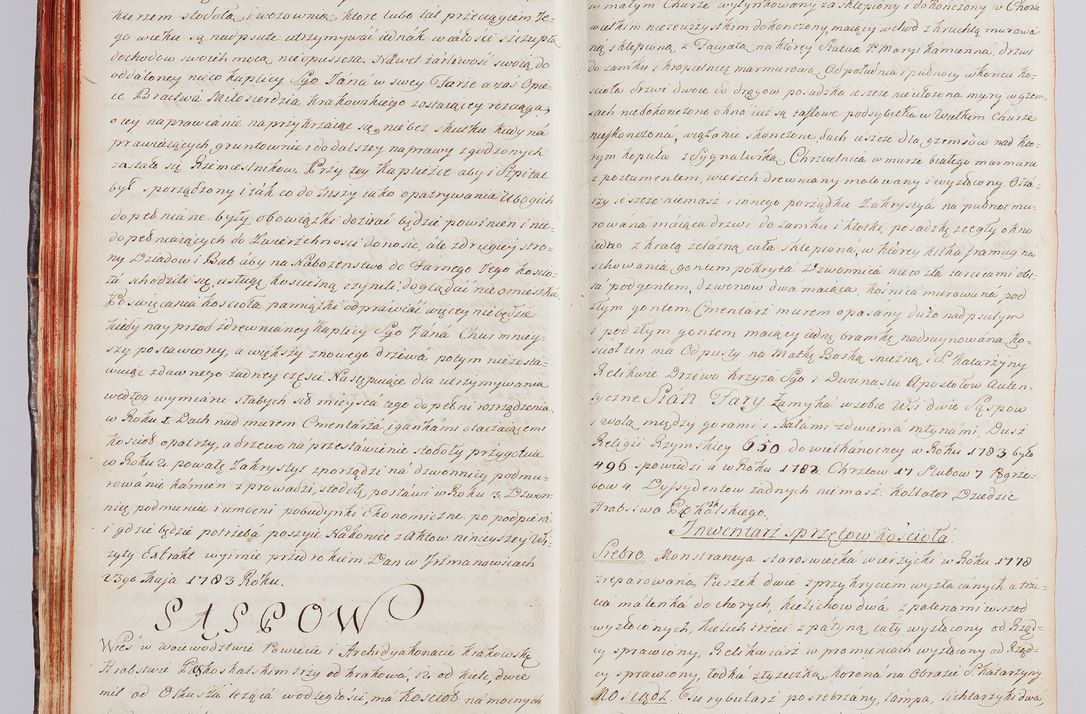 nie rzem stodoła i wozownia, ktore lubo tał przeciągiem Je-
go wieku są nadpsute utrzymywać iednák w całości i szczupłą
dochodow swoich mocą nieopuszcza. Náwet zárliwość swoią do
oddaloney nieco kaplicy Sgo Janá w swey Farze a zás Opie-
ce Bractwá Miłosierdzia krakowskiego zostaiącey rozciąga
o iey napráwianie naprzykrzaiąc się, nie bez skutku kiedy ná
prawuiących gruntownie i do dalszey naprawy zgodzonych
zastáło się Rzemiestnikow. Przy tey kaplicie aby i Szpital
był sporządzony i ták co do duszy iáko opatrywania Ubogich
dopełniane były obowiązki dozirać będzie powinien i nie-
dopełniaiących do Zwierzchności donosić, ale z drugiey stro-
ny Dziadow i Bab aby na Nabożenstwo do Farnego Tego kościo-
łá schodzili się, usługę kościelną czynili doglądać nie omieszka.
Poswięcania kościoła pamiątki odprawiáć więcey nie będzie
kiedy nayprzod z drewnianey kaplicy Sgo Janá Chur mniey-
szy postáwiony, a większy z nowego drzewá potym nie zosta-
wuiąc z dawnego żadney części. Następuiące dla utrzymywania
według wymiáru słábych sił mieyscá tego dopełni rozrządzenia.
w Roku 1. Dach nad murem Cmentárzá i gankámi otaczaiącemi
kościoł opatrzy, a drzewo na przestawienie stodoły przygotuie
w Roku 2. powałę Zakrystyi sporządzi ná dzwonnicy podmu-
rowánie kámien zprowadzi, stodołę postáwi w Roku 3. Dzwon-
nicę podmuruie i umocni pobudynki Ekonomiczne popodpierá
i gdzie będzie potrzebá poszyie Nakoniec z Aktow ninieyszey Wi-
zyty Extrakt wyimie przed rokiem. Dan w Jerzmanowicach
23go Maja 1783 Roku.
SĄSPOW
Wieś w woiewodztwie Powiecie i Archidyakonacie krakowskim
Hrabstwie Pieskoskalskim trzy od krakowá, 12. od kielc, dwie
mil od Olkuszá leżąca w odległości, má kościoł ná mocnych
w małym Churze wytynkowany zásklepiony i dokonczony w Chorze
wielkim nie zewszystkim dokonczony maiący wchod z kruchtą murowa-
ną sklepioną z Facyatą na ktorey Statua N. Maryi kámienna, drzwi
do zamku i kropielnicę marmurową Od południa i pułnocy w koncu ko-
ścioła drzwi dwoie do drągow posadzka ieszcze nie ułożona mury w gzem-
sach niedokończone okno iuż są taflowe podsiębitka w Wielkim Churze
nieskonczona, wiązánie skonczone, dach ieszcze dla gzemsow nad kto-
rym kopuła z Sygnaturką Chrzcielnica w murze białego marmuru
z postumentem, wierzch drewniany malowany i wyzłocony Ołta-
rzy ieszcze niemasz i innego porządku Zakrystya ná pułnoc mu-
rowána maiąca drzwi do zamku i klotki, posadzkę z cegły okno
iedno z kratą żelázną cała sklepioná, w ktorey kilka framug na
schowania gontem pokryta Dzwonnica nieco zła tarcicami obi-
ta pod gontem, dzwonow dwa maiąca, kośnica murowána pod
złym gontem Cmentarz murem opasany dużo nadpsutym
i pod złym gontem maiący iedną bramkę nadruynowáną ko-
ścioł ten ma Odpusty na Matkę Boską snieżną i S. Katarzyny
Relikwie Drzewa krzyża Sgo i Dwunastu Apostołow auten-
tyczne. Stan Fary Zamyká w sobie Wsi dwie Sąspow
i Wolą między gorami i Skałami z dwiema młynámi, Dusz
Religii Rzymskiey 650 do wielkanocney w Roku 1783 było
496 spowiedzi á w Roku 1782. Chrztow 17 Slubow 7 Pogrze-
bow 4 Dyssydentow żadnych niemasz. Kollator Dziedzic
Hrabstwa Pieskoskálskiego.
Inwentarz sprzętow kościoła
Srebro. Monstrancya staroswiecka wierzycki w Roku 1778
zreparowáná, Puszek dwie z przykryciem wyzłacanych a trze-
cia máłenká do chorych, kielichow dwá z patenámi wsrzod
wyzłoconych, kielich trzeci z pátyną cáły wyzłocony od Rząd-
cy sprawiony, Relikwiarz w promieniach wyzłocony od Rząd-
cy sprawiony, łodka z łyżeczką, korona na obrazie S. Katarzyny
Mosiądz. Turybularz posrebrzany, lampa, lichtarzyki dwá,